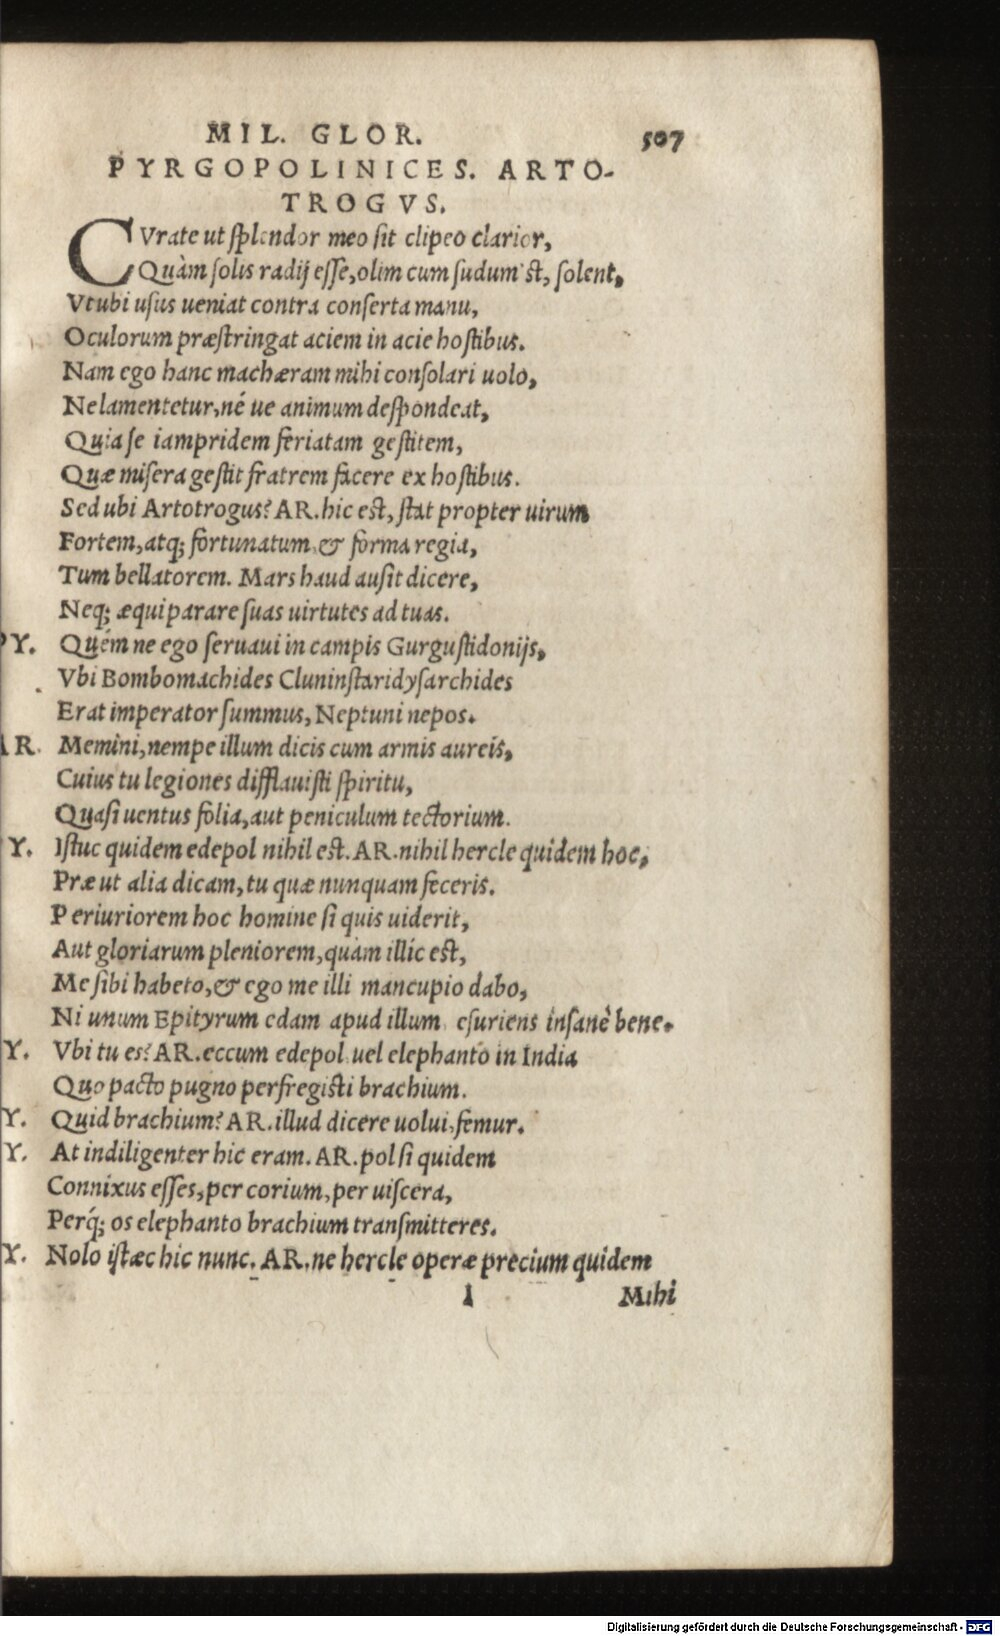 MIL. GLOR. 507
PYRGOPOLINICES. ARTO-
TROGVS.
CVrate ut splendor meo sit clipeo clarior,
Quàm solis radij esse, olim cum sudum'st, solent,
Vt ubi usus ueniat contra conserta manu,
Oculorum præstringat aciem in acie hostibus.
Nam ego hanc machæram mihi consolari uolo,
Ne lamentetur, né ue animum despondeat,
Quia se iampridem feriatam gestitem,
Quæ misera gestit fratrem facere ex hostibus.
Sed ubi Artotrogus? AR. hic est, stat propter uirum
Fortem, atq; fortunatum, & forma regia,
Tum bellatorem. Mars haud ausit dicere,
Neq; æquiparare suas uirtutes ad tuas.
PY. Quém ne ego seruaui in campis Gurgustidonijs,
Vbi Bombomachides Cluninstaridysarchides
Erat imperator summus, Neptuni nepos.
AR. Memini, nempe illum dicis cum armis aureis,
Cuius tu legiones difflauisti spiritu,
Quasi uentus folia, aut peniculum tectorium.
Y. Istuc quidem edepol nihil est. AR. nihil hercle quidem hoc,
Præ ut alia dicam, tu quæ nunquam feceris.
Periuriorem hoc homine si quis uiderit,
Aut gloriarum pleniorem, quàm illic est,
Me sibi habeto, & ego me illi mancupio dabo,
Ni unum Epityrum edam apud illum esuriens insanè bene.
Y. Vbi tu es? AR. eccum edepol uel elephanto in India
Quo pacto pugno perfregisti brachium.
Y. Quid brachium? AR. illud dicere uolui, femur.
Y. At indiligenter hic eram. AR. pol si quidem
Connixus esses, per corium, per uiscera,
Perq́; os elephanto brachium transmitteres.
Y. Nolo istæc hic nunc. AR. ne hercle operæ precium quidem
I Mihi
Digitalisierung gefördert durch die Deutsche Forschungsgemeinschaft - DFG